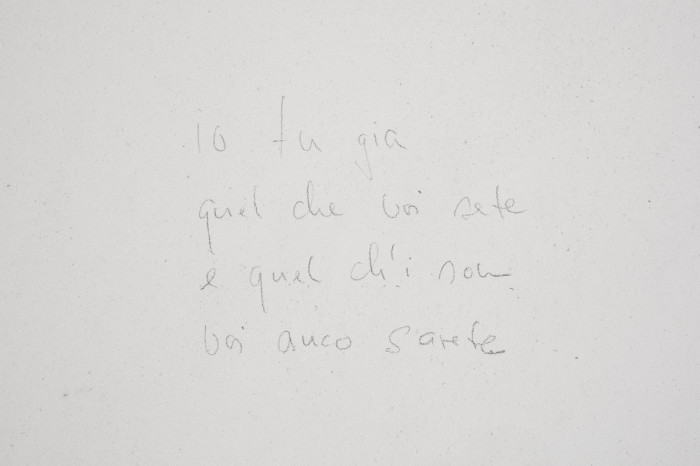 io fu già
quel che voi sete
e quel ch'i son
voi anco sarete